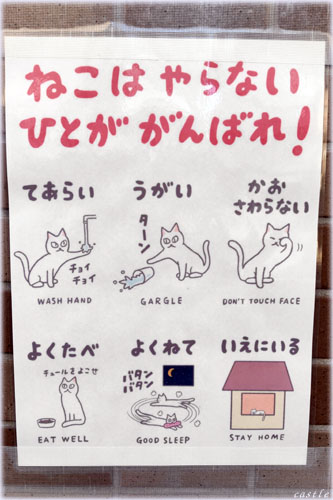 ねこは やらない
ひとが がんばれ!
てあらい
チョイ
チョイ
WASH HAND
うがい
ターン
GARGLE
かお
さわらない
DON'T TOUCH FACE
よくたべ
チュールをよこせ
EAT WELL
よくねて
バタン
バタン
GOOD SLEEP
いえにいる
STAY HOME
castle